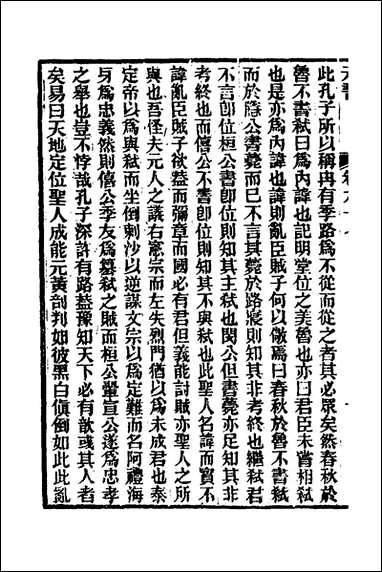 此孔子所以稱冉有季路爲不從而從之者其必眾矣然春秋於
魯不書弒曰爲內諱也記明堂位之美魯也亦曰君臣未嘗相弒
也是亦爲內諱也諱則亂臣賊子何以儆焉曰春秋於魯不書弒
而於隱公書薨而已不言其薨於路寢則知其非考終也繼弒君
不言卽位桓公書卽位則知其主弒也閔公但書薨亦足知其非
考終也而僖公不書卽位則知其不與弒也此聖人名諱而實不
諱亂臣賊子欲蓋而彌章而國必有君但義能討賊亦聖人之所
與也吾怪夫元人之議右憲宗而左失烈門猶以爲未成君也泰
定帝以爲與弒而坐倒剌沙以逆謀文宗以爲定難而名阿禮海
牙爲忠義然則僖公季友爲篡弒之賊而桓公翬宣公遂爲忠孝
之舉也豈不悖哉孔子深許有路蓋豫知天下必有歆或其人者
矣易曰天地定位聖人成能元黃剖判如彼黑白傎倒如此此亂